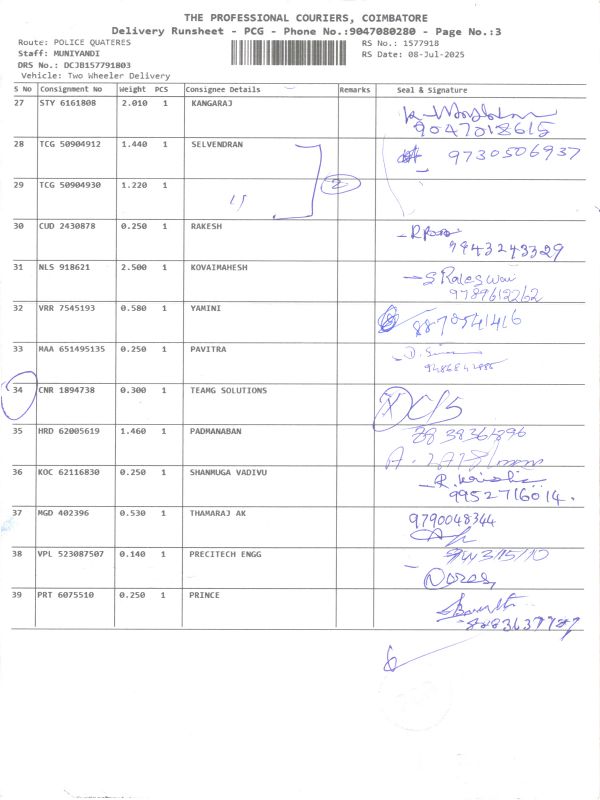 THE PROFESSIONAL COURIERS, COIMBATORE
Delivery Runsheet - PCG - Phone No.:9047080280 - Page No.:3
Route: POLICE QUATERES RS No.: 1577918
Staff: MUNIYANDI RS Date: 08-Jul-2025
DRS No.: DCJB157791803
Vehicle: Two Wheeler Delivery
S No Consignment No Weight PCS Consignee Details Remarks Seal & Signature
27 STY 6161808 2.010 1 KANGARAJ
9047018615
28 TCG 50904912 1.440 1 SELVENDRAN 9730506937
29 TCG 50904930 1.220 1 " 2
30 CUD 2430878 0.250 1 RAKESH
9943243329
31 NLS 918621 2.500 1 KOVAIMAHESH
9789612262
32 VRR 7545193 0.580 1 YAMINI 8870541416
33 MAA 651495135 0.250 1 PAVITRA
34 CNR 1894738 0.300 1 TEAMG SOLUTIONS
35 HRD 62005619 1.460 1 PADMANABAN
36 KOC 62116830 0.250 1 SHANMUGA VADIVU
9952716014.
37 MGD 402396 0.530 1 THAMARAJ AK 9790048344
38 VPL 523087507 0.140 1 PRECITECH ENGG
39 PRT 6075510 0.250 1 PRINCE